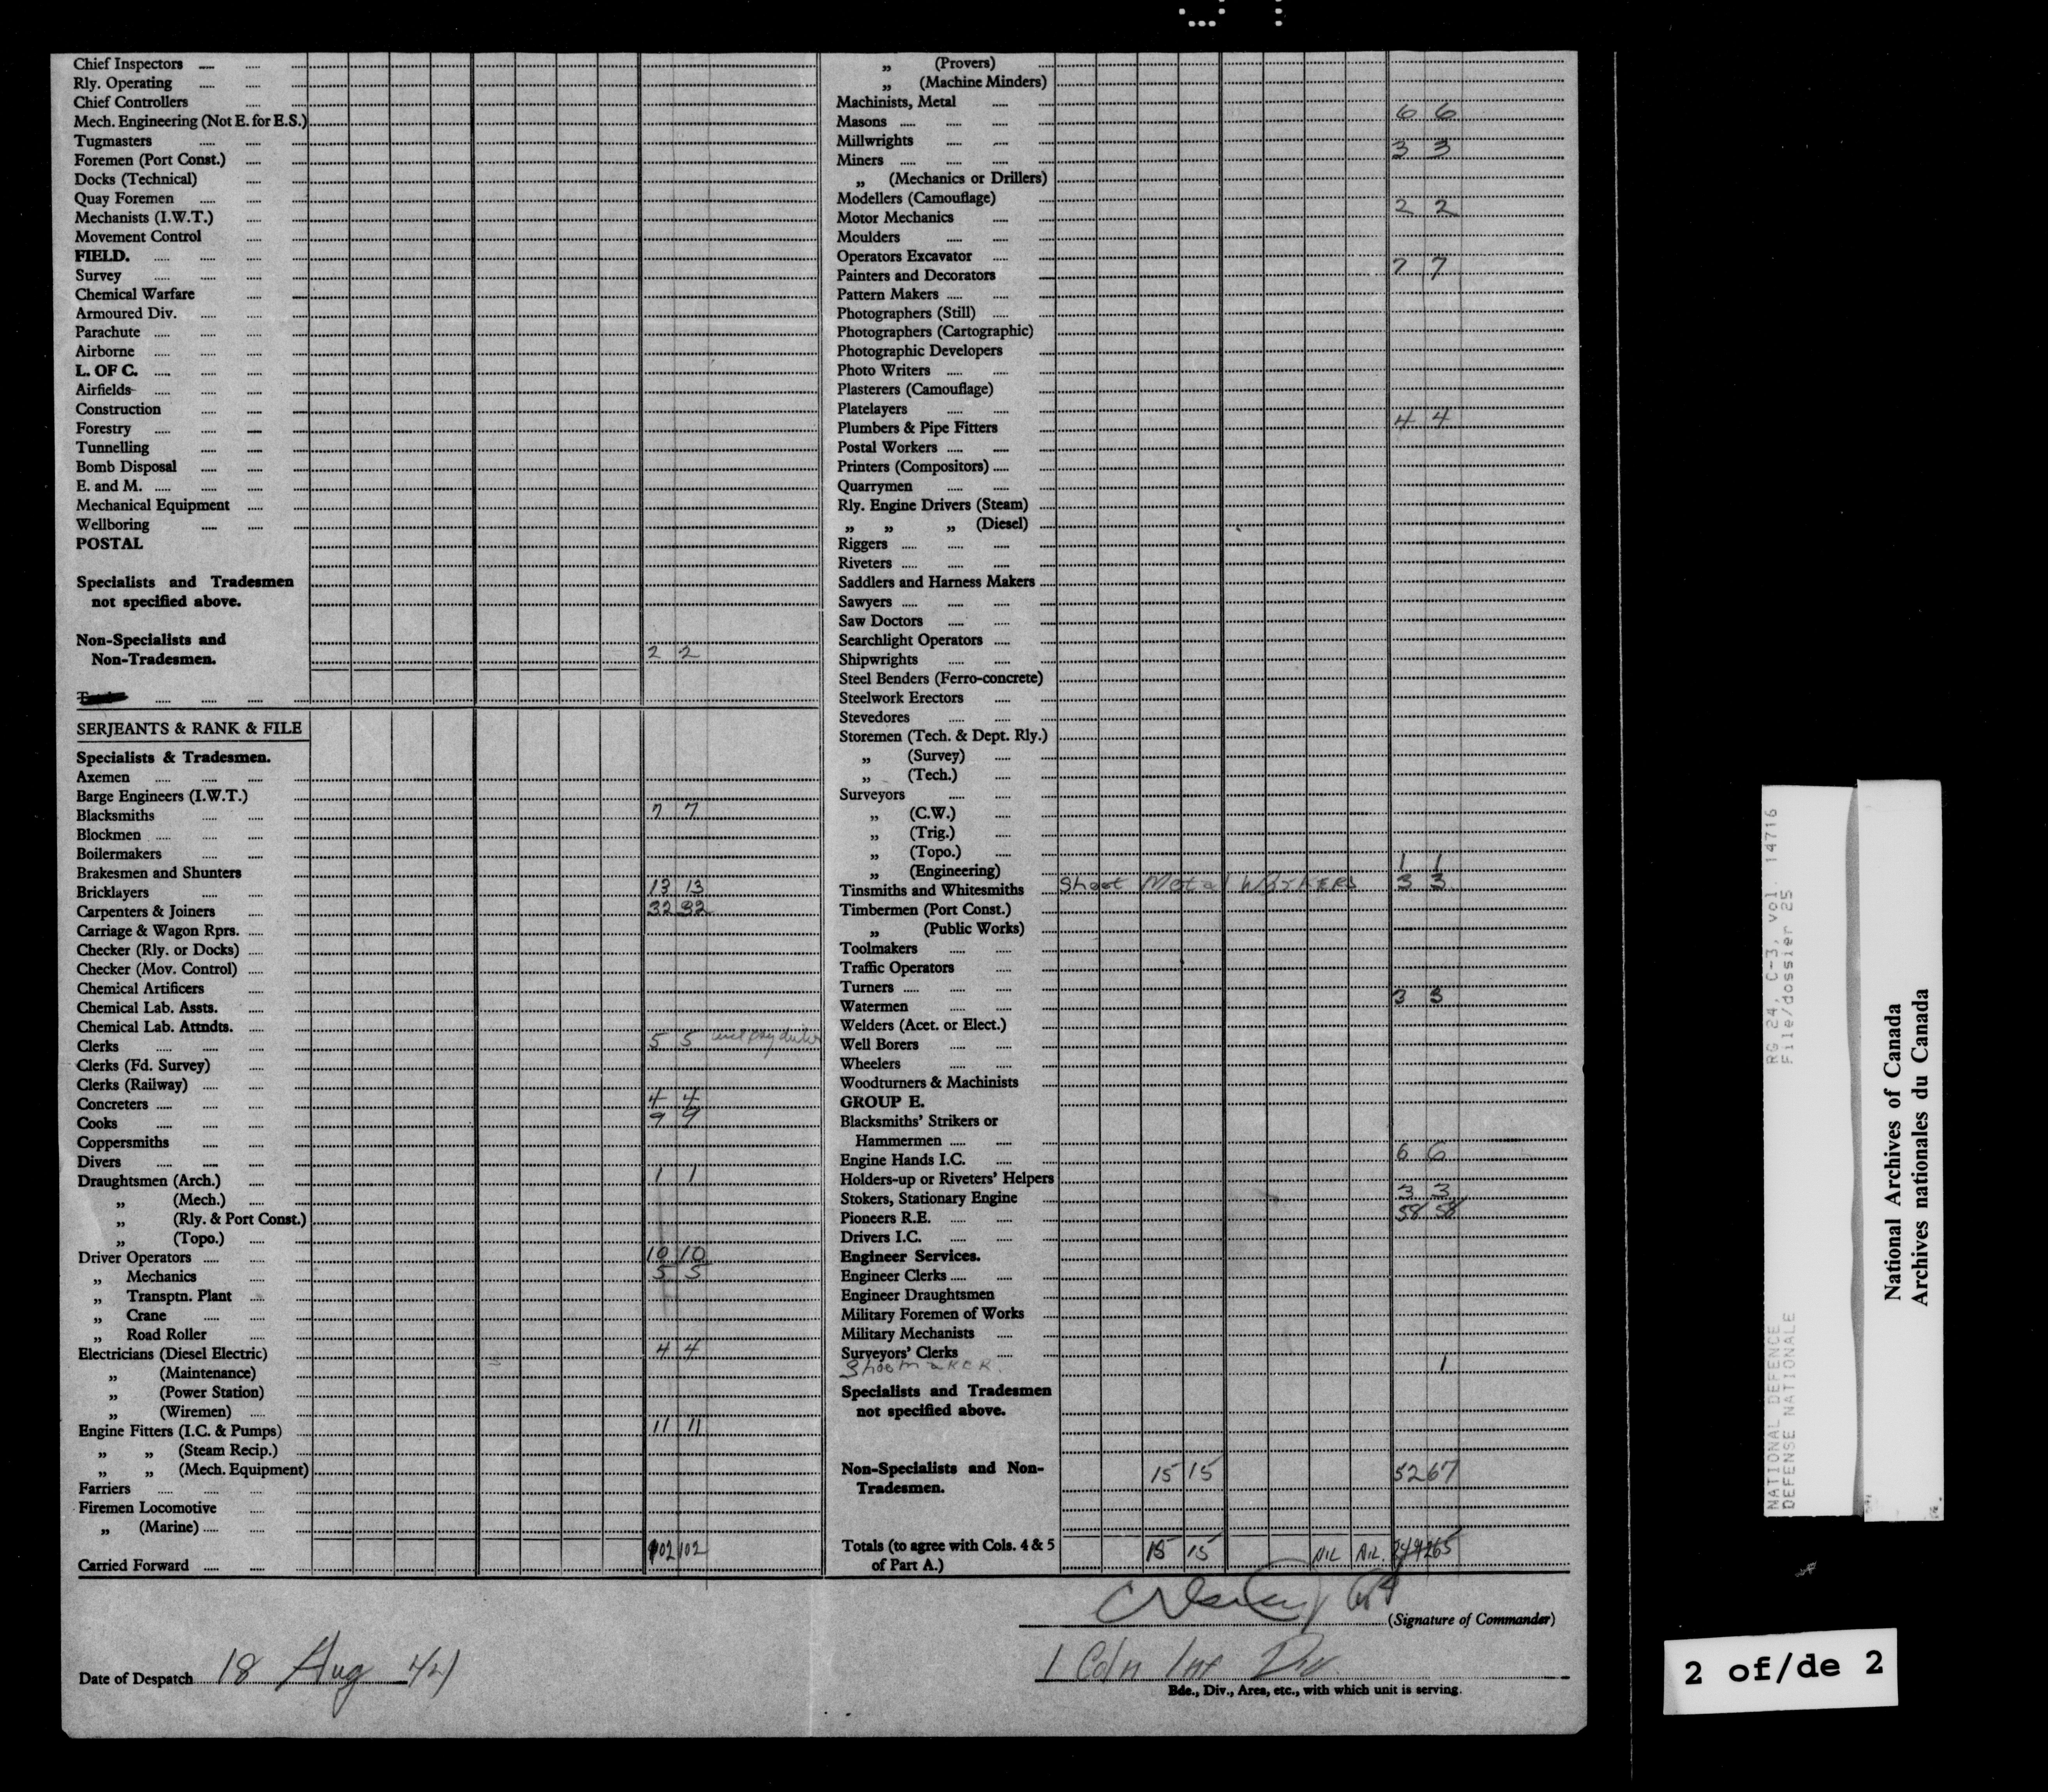 Chief Inspectors
Rly. Operating
Chief Controllers
Mech. Engineering (Not E. for E.S.)
Tugmasters
Foremen (Port Const.)
Docks (Technical)
Quay Foremen
Mechanists (I.W.T.)
Movement Control
FIELD.
Survey
Chemical Warfare
Armoured Div.
Parachute
Airborne
L. OF C.
Airfields
Construction
Forestry
Tunnelling
Bomb Disposal
E. and M.
Mechanical Equipment
Wellboring
POSTAL
Specialists and Tradesmen
not specified above.
Non-Specialists and
Non-Tradesmen. 2 2
SERJEANTS & RANK & FILE
Specialists & Tradesmen.
Axemen
Barge Engineers (I.W.T.)
Blacksmiths 7 7
Blockmen
Boilermakers
Brakesmen and Shunters
Bricklayers 13 13
Carpenters & Joiners 32 32
Carriage & Wagon Rprs.
Checker (Rly. or Docks)
Checker (Mov. Control)
Chemical Artificers
Chemical Lab. Assts.
Chemical Lab. Attndts.
Clerks 5 5
Clerks (Fd. Survey)
Clerks (Railway)
Concreters 4 4
Cooks 9 9
Coppersmiths
Divers
Draughtsmen (Arch.) 1 1
„ (Mech.)
„ (Rly. & Port Const.)
„ (Topo.)
Driver Operators 10 10
„ Mechanics 5 5
„ Transptn. Plant
„ Crane
„ Road Roller
Electricians (Diesel Electric) 4 4
„ (Maintenance)
„ (Power Station)
„ (Wiremen)
Engine Fitters (I.C. & Pumps) 11 11
„ „ (Steam Recip.)
„ „ (Mech. Equipment)
Farriers
Firemen Locomotive
„ (Marine)
Carried Forward 102 102
„ (Provers)
„ (Machine Minders)
Machinists, Metal
Masons 6 6
Millwrights
Miners 3 3
„ (Mechanics or Drillers)
Modellers (Camouflage)
Motor Mechanics 2 2
Moulders
Operators Excavator
Painters and Decorators 7 7
Pattern Makers
Photographers (Still)
Photographers (Cartographic)
Photographic Developers
Photo Writers
Plasterers (Camouflage)
Platelayers
Plumbers & Pipe Fitters 4 4
Postal Workers
Printers (Compositors)
Quarrymen
Rly. Engine Drivers (Steam)
„ „ „ (Diesel)
Riggers
Riveters
Saddlers and Harness Makers
Sawyers
Saw Doctors
Searchlight Operators
Shipwrights
Steel Benders (Ferro-concrete)
Steelwork Erectors
Stevedores
Storemen (Tech. & Dept. Rly.)
„ (Survey)
„ (Tech.)
Surveyors
„ (C.W.)
„ (Trig.)
„ (Topo.)
„ (Engineering) 1 1
Tinsmiths and Whitesmiths Sheet Metal Workers 3 3
Timbermen (Port Const.)
„ (Public Works)
Toolmakers
Traffic Operators
Turners
Watermen 3 3
Welders (Acet. or Elect.)
Well Borers
Wheelers
Woodturners & Machinists
GROUP E.
Blacksmiths' Strikers or
Hammermen
Engine Hands I.C. 6 6
Holders-up or Riveters' Helpers
Stokers, Stationary Engine 3 3
Pioneers R.E. 58 58
Drivers I.C.
Engineer Services.
Engineer Clerks
Engineer Draughtsmen
Military Foremen of Works
Military Mechanists
Surveyors' Clerks
Shoemaker. 1
Specialists and Tradesmen
not specified above.
Non-Specialists and Non- 15 15 52 67
Tradesmen.
Totals (to agree with Cols. 4 & 5 15 15 NIL NIL. 249 265
of Part A.)
(Signature of Commander)
Date of Despatch 18 Aug 42
1 Cdn Inf Div.
Bde., Div., Area, etc., with which unit is serving.
RG 24, C-3, vol. 14716
File/dossier 25
NATIONAL DEFENCE
DEFENSE NATIONALE
National Archives of Canada
Archives nationales du Canada
2 of/de 2